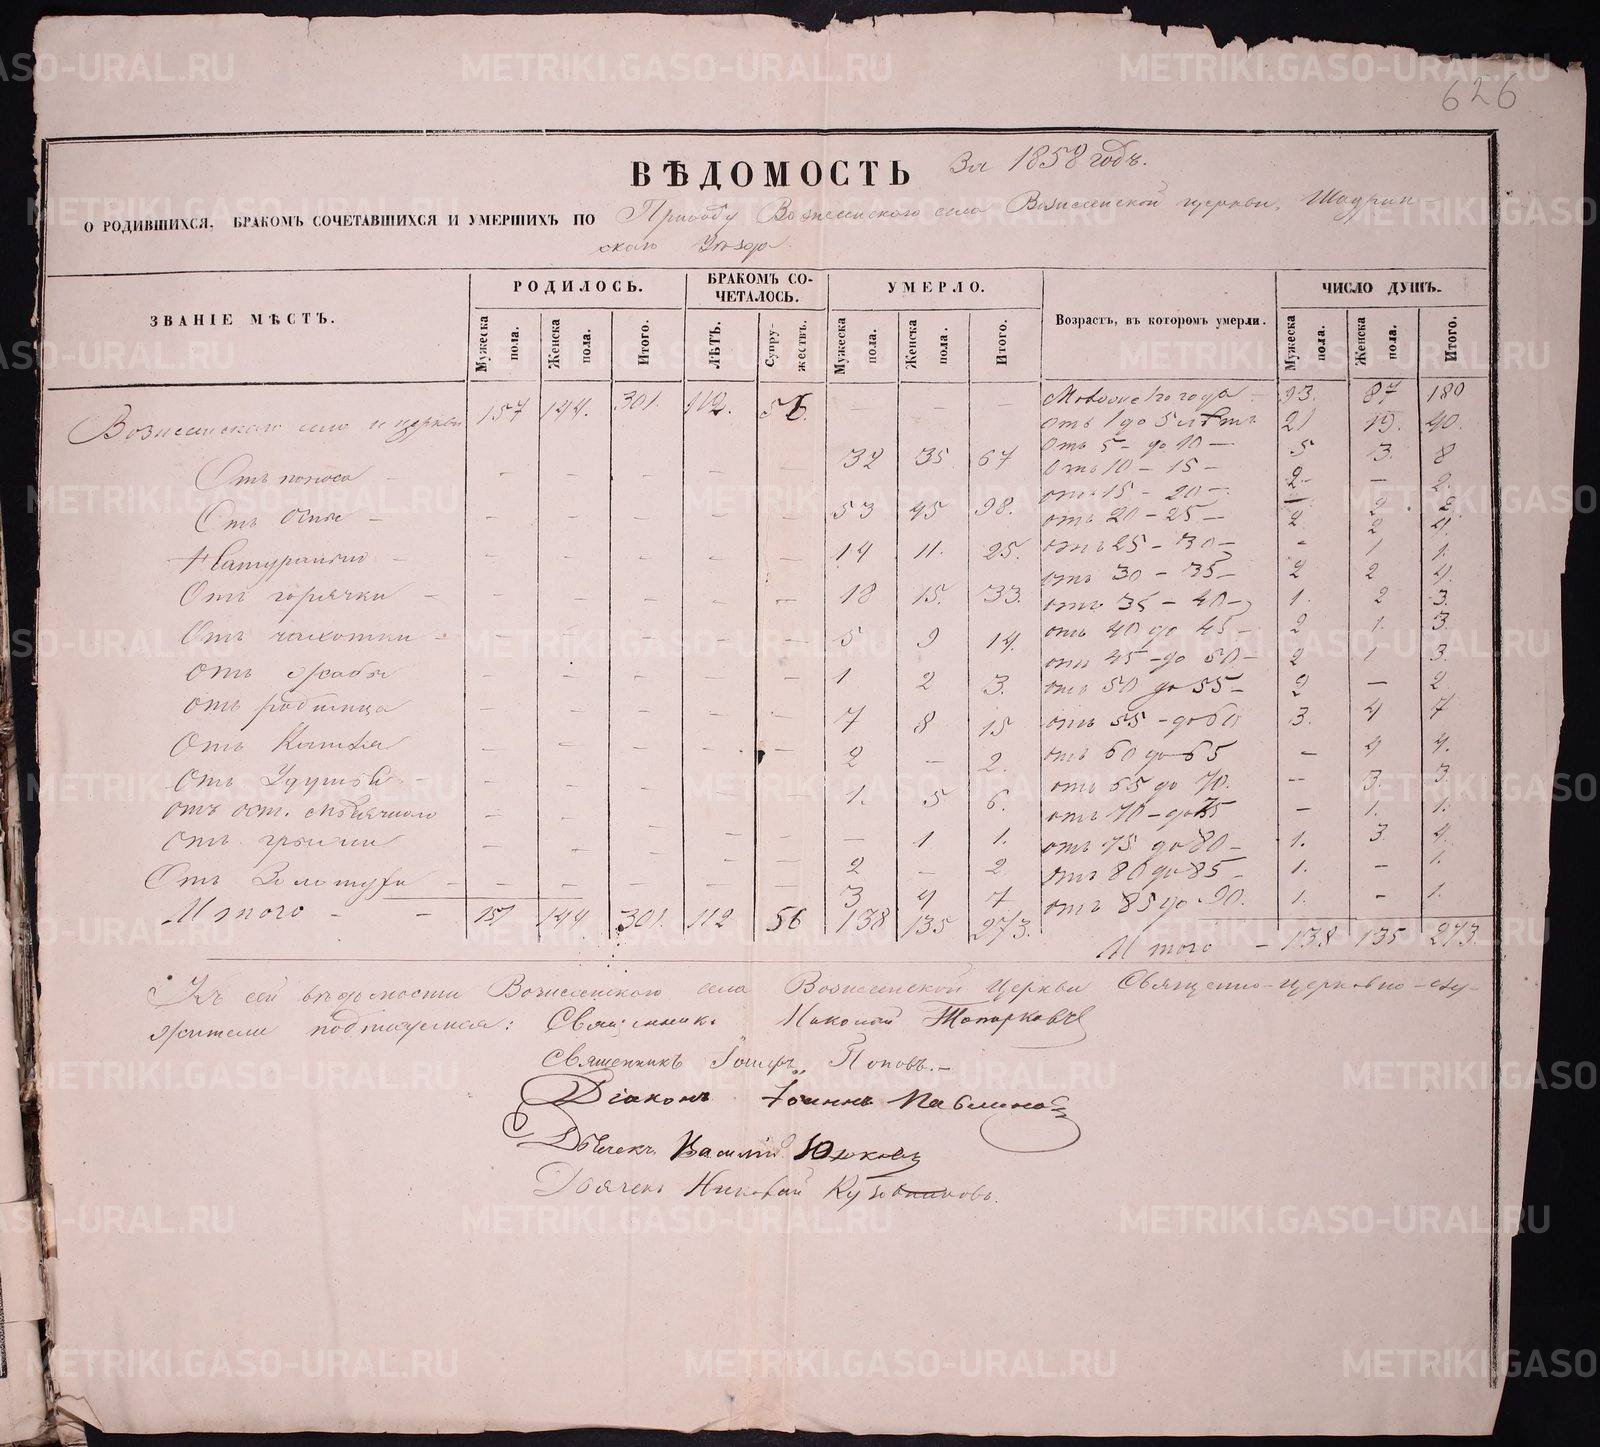 626
ВѢДОМОСТЬ За 1858 годъ.
О РОДИВШИХСЯ, БРАКОМЪ СОЧЕТАВШИХСЯ И УМЕРШИХЪ ПО Приходу Вознесенскаго села Вознесенской церкви, Шадрин-
скаго Уѣзда.
ЗВАНІЕ МѢСТЪ. РОДИЛОСЬ. БРАКОМЪ СО-ЧЕТАЛОСЬ. УМЕРЛО. Возрастъ, въ которомъ умерли. ЧИСЛО ДУШЪ.
Мужеска пола. Женска пола. Итого. ЛѢТЪ. Супру-жествъ. Мужеска пола. Женска пола. Итого. Мужеска пола. Женска пола. Итого.
Вознесенскаго села и церкви 157 144. 301. 112. 56. — — — года 93. 87 180
отъ 1 до 5 лѣтъ 21 19. 40.
Отъ поноса — — — — — — 32 35 67 Отъ 5 — до 10 — 5 3. 8
Отъ 10 — 15 — 2 — 2.
Отъ Оспы — — — — — — 53 45 98. отъ 15 — 20 — — 2 2
отъ 20 — 25 — 2 2 4.
Натурально — — — — — — 14 11. 25. отъ 25 — 30 — — 1 1.
отъ 30 — 35 — 2 2 4.
Отъ горячки — — — — — — 18 15. 33. отъ 35 — 40 — 1. 2 3.
Отъ чахотки — — — — — — 5 9 14. отъ 40 до 45 — 2 1. 3.
отъ 45 — до 50 — 2 1 3.
отъ жабы — — — — — 1 2 3. отъ 50 до 55 — 2 — 2
отъ родимца — — — — — 7 8 15 отъ 55 — до 60 3. 4 7
Отъ Кашля — — — — — 2 — 2. отъ 60 до 65 — 4 4.
Отъ Удушья — — — — — — 1. 5 6. отъ 65 до 70. — 3. 3.
отъ — — — — — — 1 1. отъ 70 — до 75 — 1. 1.
отъ — — — — — 2 — 2 отъ 75 до 80 — 1. 3 4.
отъ 80 до 85 — 1. — 1.
Отъ Золотухи — — — — — — 3 4 7 отъ 85 до 90. 1. — 1.
Итого — — 157 144 301. 112 56 138 135 273. Итого — 138 135 273.
Къ сей вѣдомости Вознесенскаго села Вознесенской Церкви Священно-церковно-слу-
жители подписуемся: Священникъ Николай Топорковъ
Священникъ Іосифъ Поповъ. —
Діаконъ Іоаннъ
Дьячекъ Василій
Дьячекъ Николай
METRIKI.GASO-URAL.RU